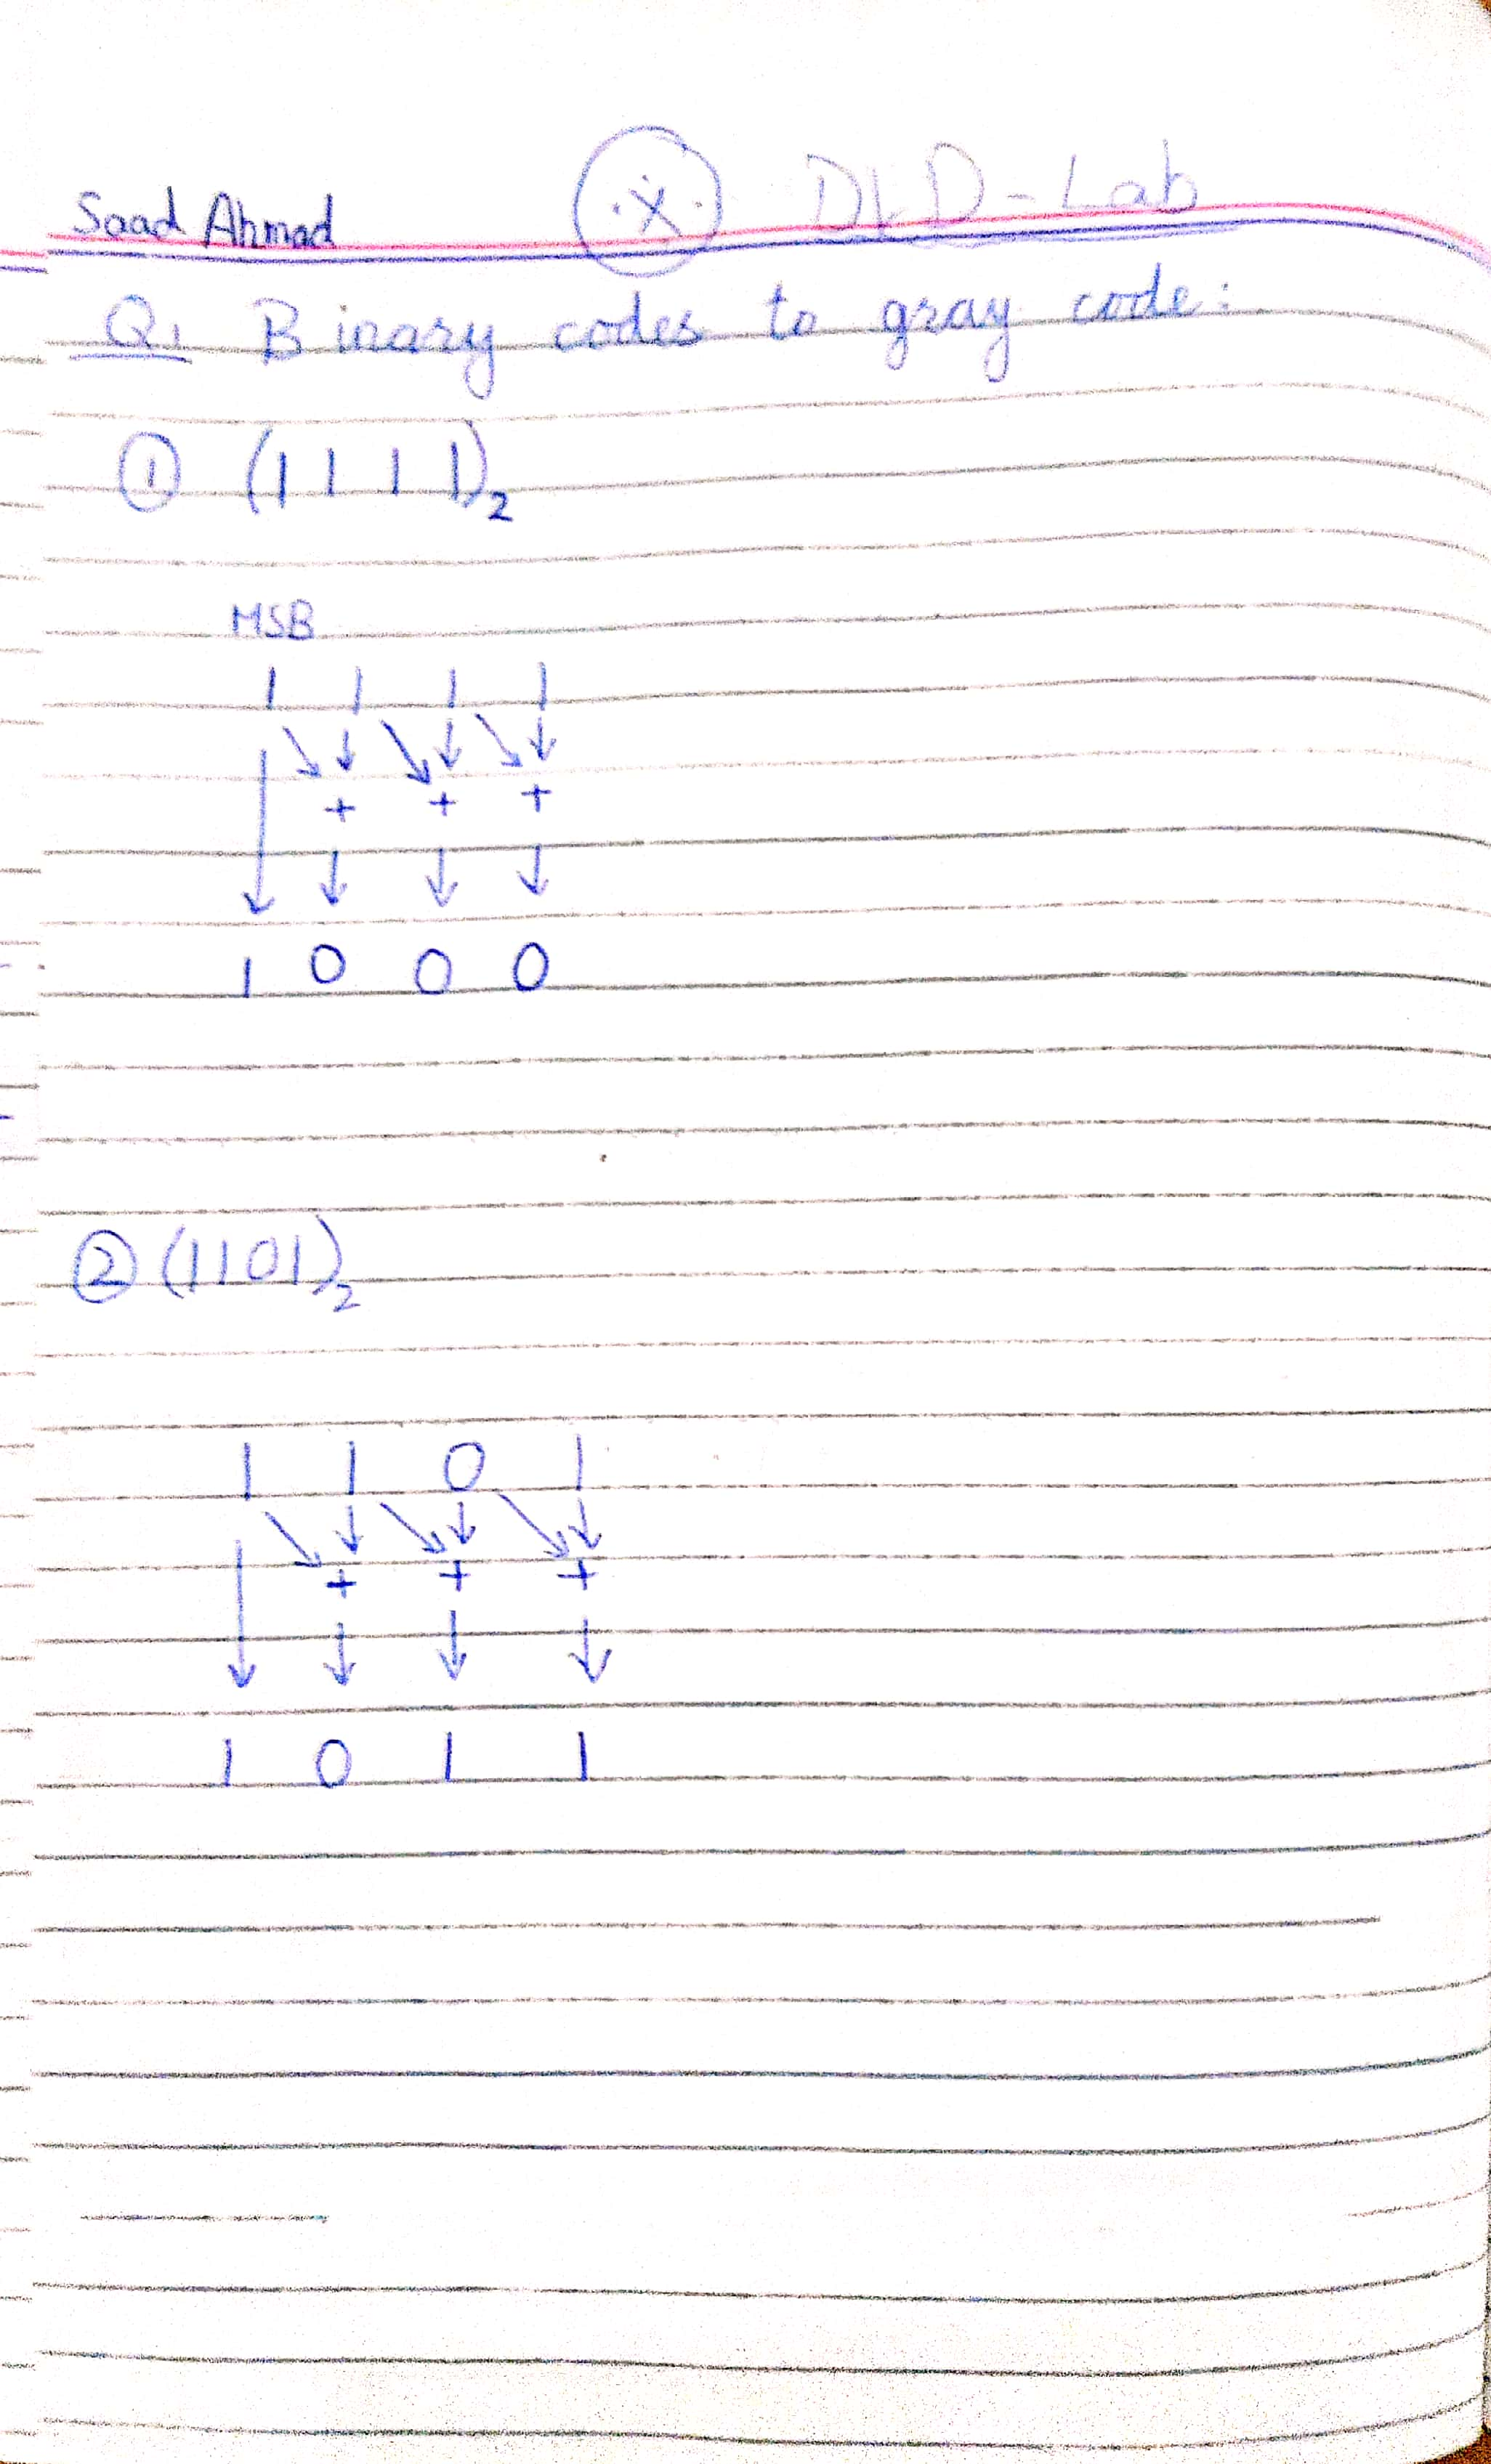 Saad Ahmad DLD-Lab
Q1 Binary codes to gray code:
① (1111)₂
MSB
1 1 1 1
+ + +
1 0 0 0
② (1101)₂
1 1 0 1
+ + +
1 0 1 1